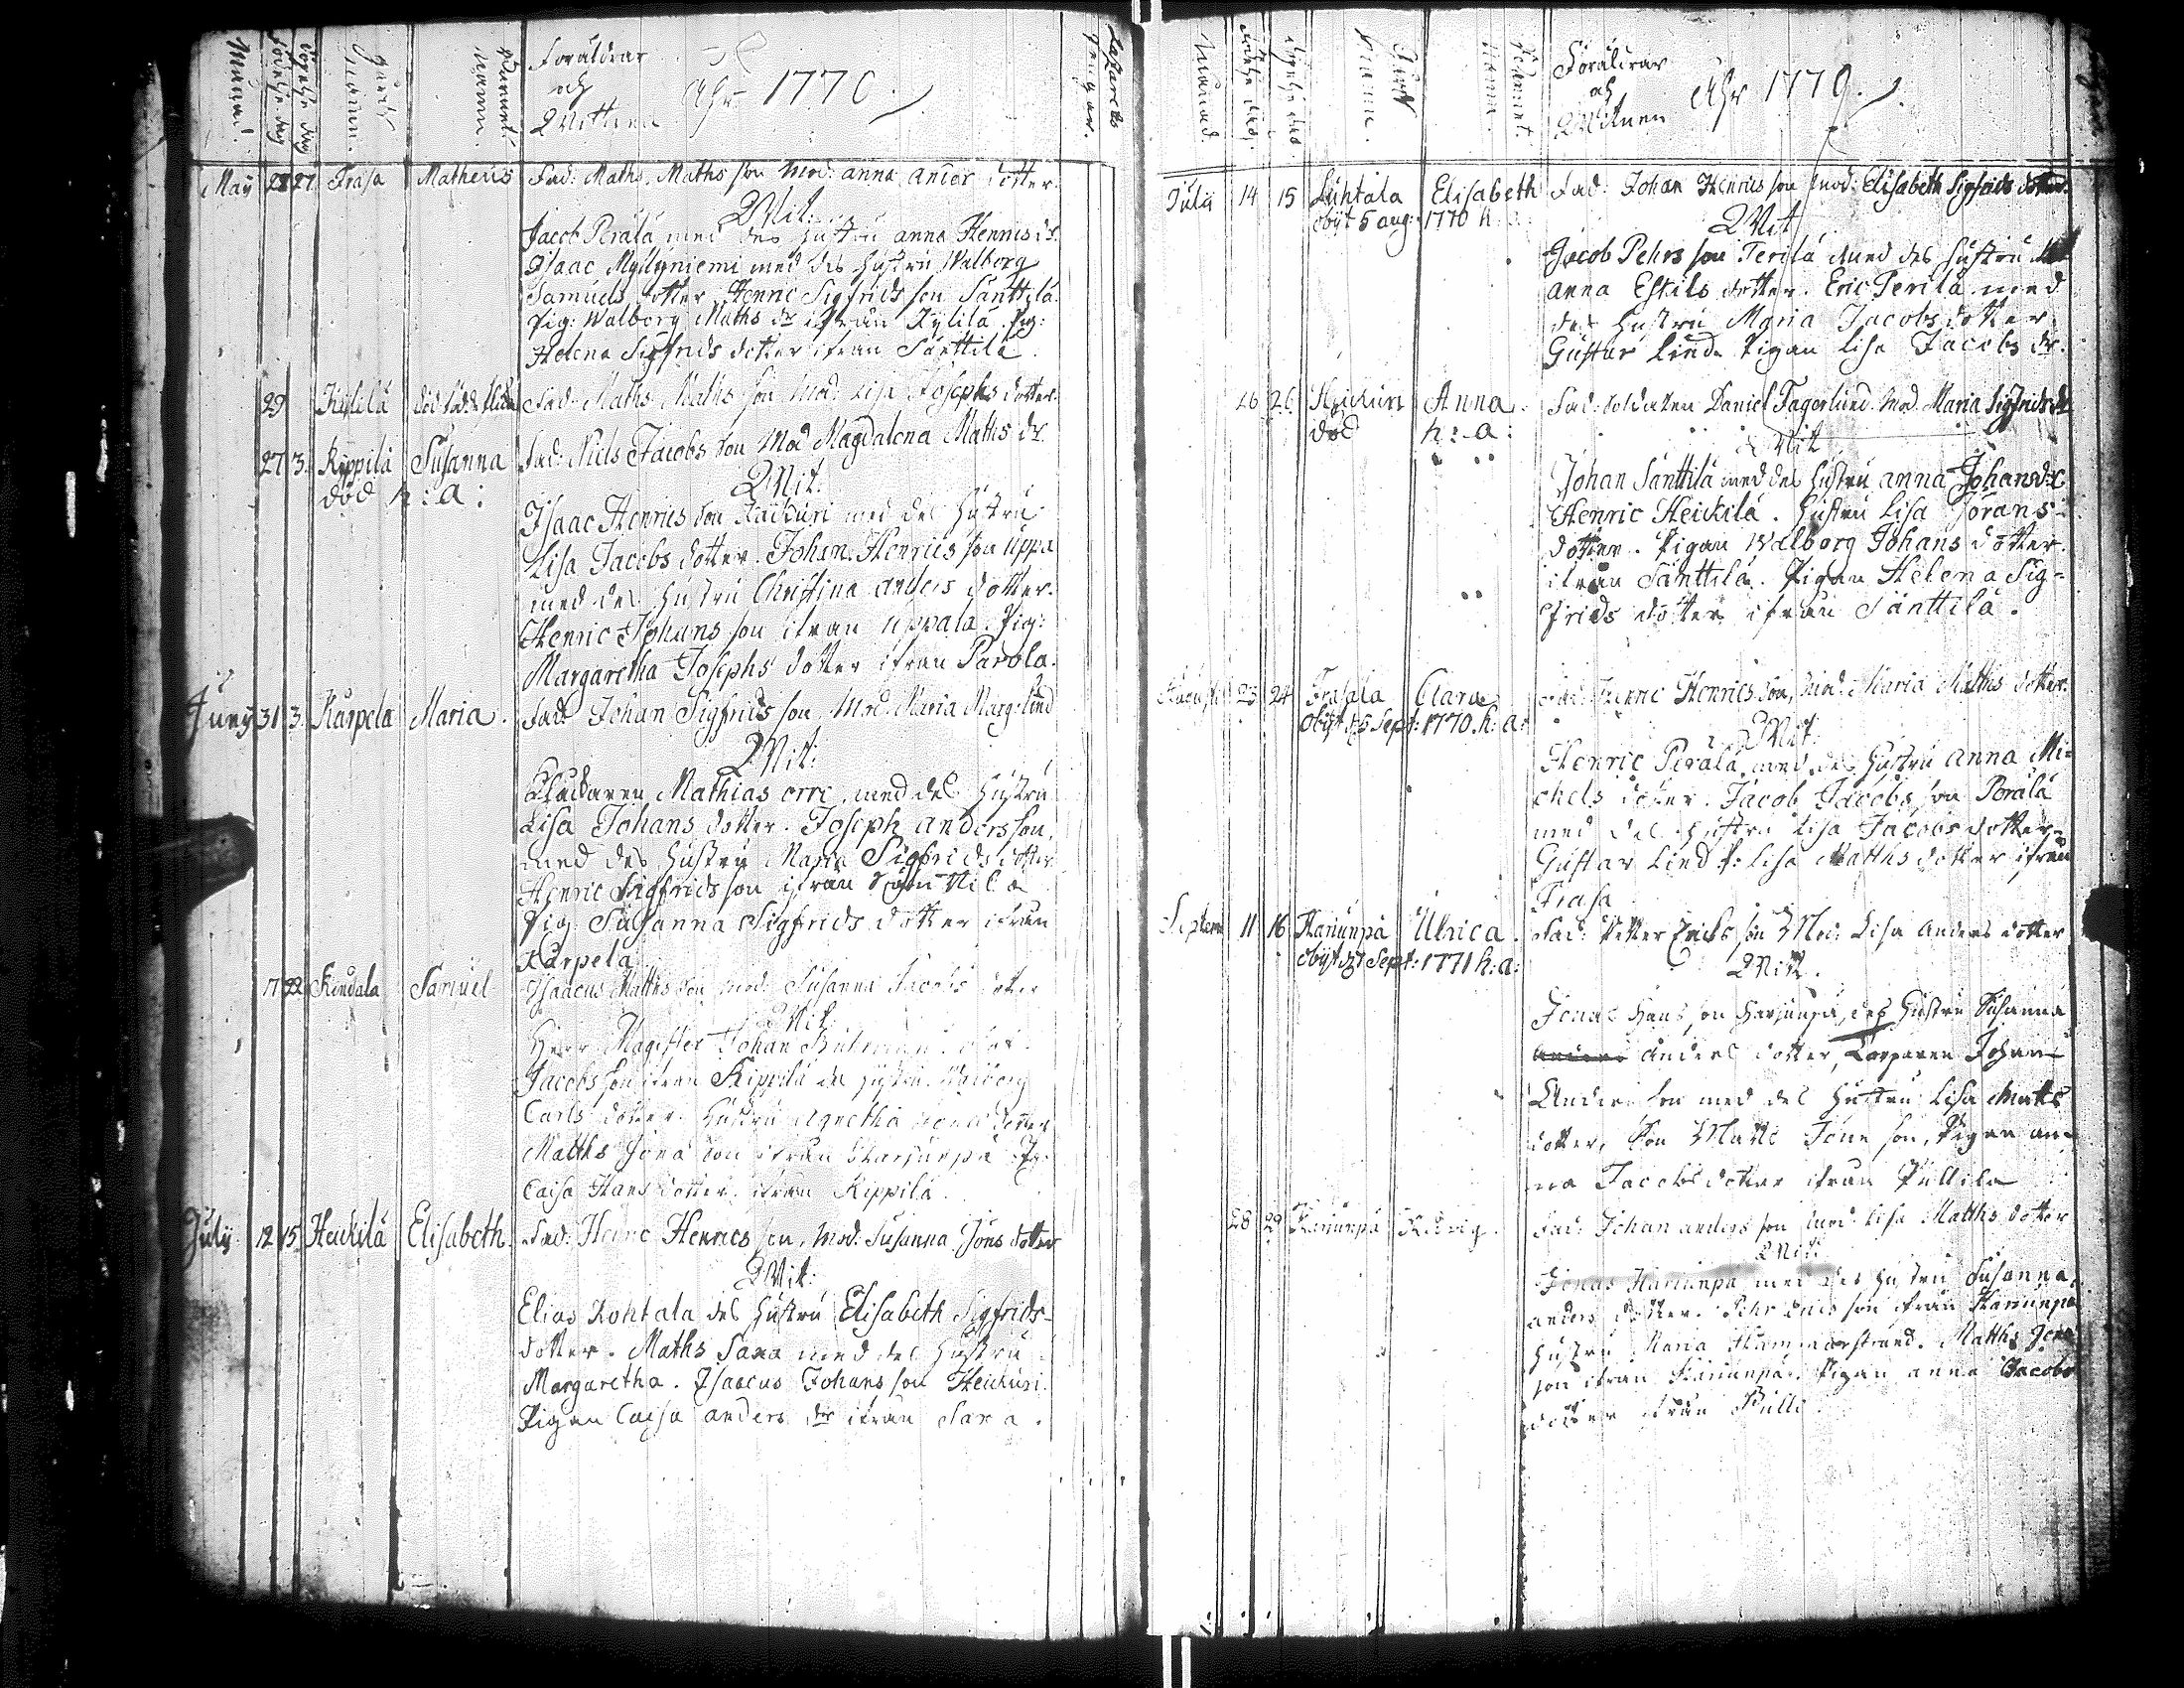 Månad. Födelse dag Döpelse dag Gårds namn. Barnets namn. Föräldrar och Wittnen Åhr 1770. Lazaretts pengar.
May 28 27 Frasa Matheus Fad: Maths Maths son Mod: anna anders dotter.
Wit:
Jacob Perälä med des hustru anna Henrics dr.
Isaac Myllyniemi med des hustru Walborg
Samuels dotter, Henric Sigfrids son Santtila.
Pig: Walborg Maths dr ifrån Kylilä. Pig:
Helena Sigfrids dotter ifrån Santtila.
29 Kylilä död född Fad: Maths Maths son Mod: Lisa Josephs dotter.
27 3. Kippilä Susanna Fad: Nils Jacobs son Mod Magdalena Maths dr
död h: a: Wit:
Isaac Henrics son med des hustru
Lisa Jacobs dotter. Johan Henrics son Uppa
med des hustru Christina anders dotter.
Henric Johans son ifrån uppala. Pig:
Margaretha Josephs dotter ifrån Parola.
Juny 31 3. Karpela Maria. Fad Johan Sigfrids son, Mod. Maria Marg: lind
Wit:
Mathias orre, med des hustru
Lisa Johans dotter. Joseph anders son,
med des hustru Maria Sigfrids dotter
Henric Sigfrids son ifrån
Pig Susanna Sigfrids dotter ifrån
Karpela.
17 22 Kendala Samuel Isaacus Matths son mod: Susanna Jacobs dotter
Wit:
Herr Magister Johan
Jacobs son ifrån Kippilä des hustru Walborg
Carls dotter. hustru Agnetha dotter
Matths Jona son ifrån Harjunpä Pig:
Caisa Hans dotter ifrån Kippilä.
July 12 15. Heickilä Elisabeth. Fad: Henric Henrics son, Mod: Susanna Jöns dotter
Wit:
Elias Kohtala des hustru Elisabeth Sigfrids-
dotter. Maths Saxa med des hustru
Margaretha. Isaacus Johans son Heickuri.
Pigan Caisa anders dr ifrån Saxa.
Månad. Födelse dag. Döpelse dag Gårds Namn. Barnet Namn. Föräldrar och Witnen Åhr 1770.
Julii 14 15 Luhtala Elisabeth Fad: Johan Henrics son mod: Elisabeth Sigfrids dotter.
obijt 5 aug: 1770 h: Wit
Jacob Pehrs son Perilä med des hustru
anna Eskils dotter. Eric Perilä med
des hustru Maria Jacobs dotter.
Gustav Lind. Pigan Lisa Jacobs dr.
26 26. Heickuri Anna. Fad: Soldaten Daniel Fagerlund. Mod. Maria Sigfrids dr
död h: a: Wit
Johan Santtila med des hustru anna Johans dr
Henric Heickilä. hustru Lisa Görans-
dotter. Pigan Walborg Johans dotter.
ifrån Santtila. Pigan Helena Sig-
frids dotter ifrån Santtila.
Augusti 23 24 Frasala Clara Fad: Henric Henrics son, Mod: Maria Maths dotter.
obijt 15 Sept: 1770. h: a: Wit:
Henric Perälä med des hustru anna Mi-
chels dotter. Jacob Jacobs son Perälä
med des hustru Lisa Jacobs dotter-
Gustav Lind P: Lisa Matths dotter ifrån
Frasa
Septem 11 16 Hariunpä Ulrica. Fad: Petter Erics son Mod: Lisa Anders dotter
obijt Sept: 1771 h: a: Witt.
Jonas Hans son Harjunpä, des hustru Susanna
Anders dotter, Johan
Anders son med des hustru Lisa Matts
dotter, Matts Jone son, Pigan an-
na Jacobs dotter ifrån Pullila
28 29 Hariunpä Hedvig. Fad: Johan anders son mod: Lisa Matths dotter
Wit:
Jonas Hariunpä med des hustru Susanna
anders dotter. Pehr Erics son ifrån Hariunpä
hustru Maria Hammarstrand. Matths Jona
son ifrån Hariunpä. Pigan anna Jacobs
dotter ifrån Pulli